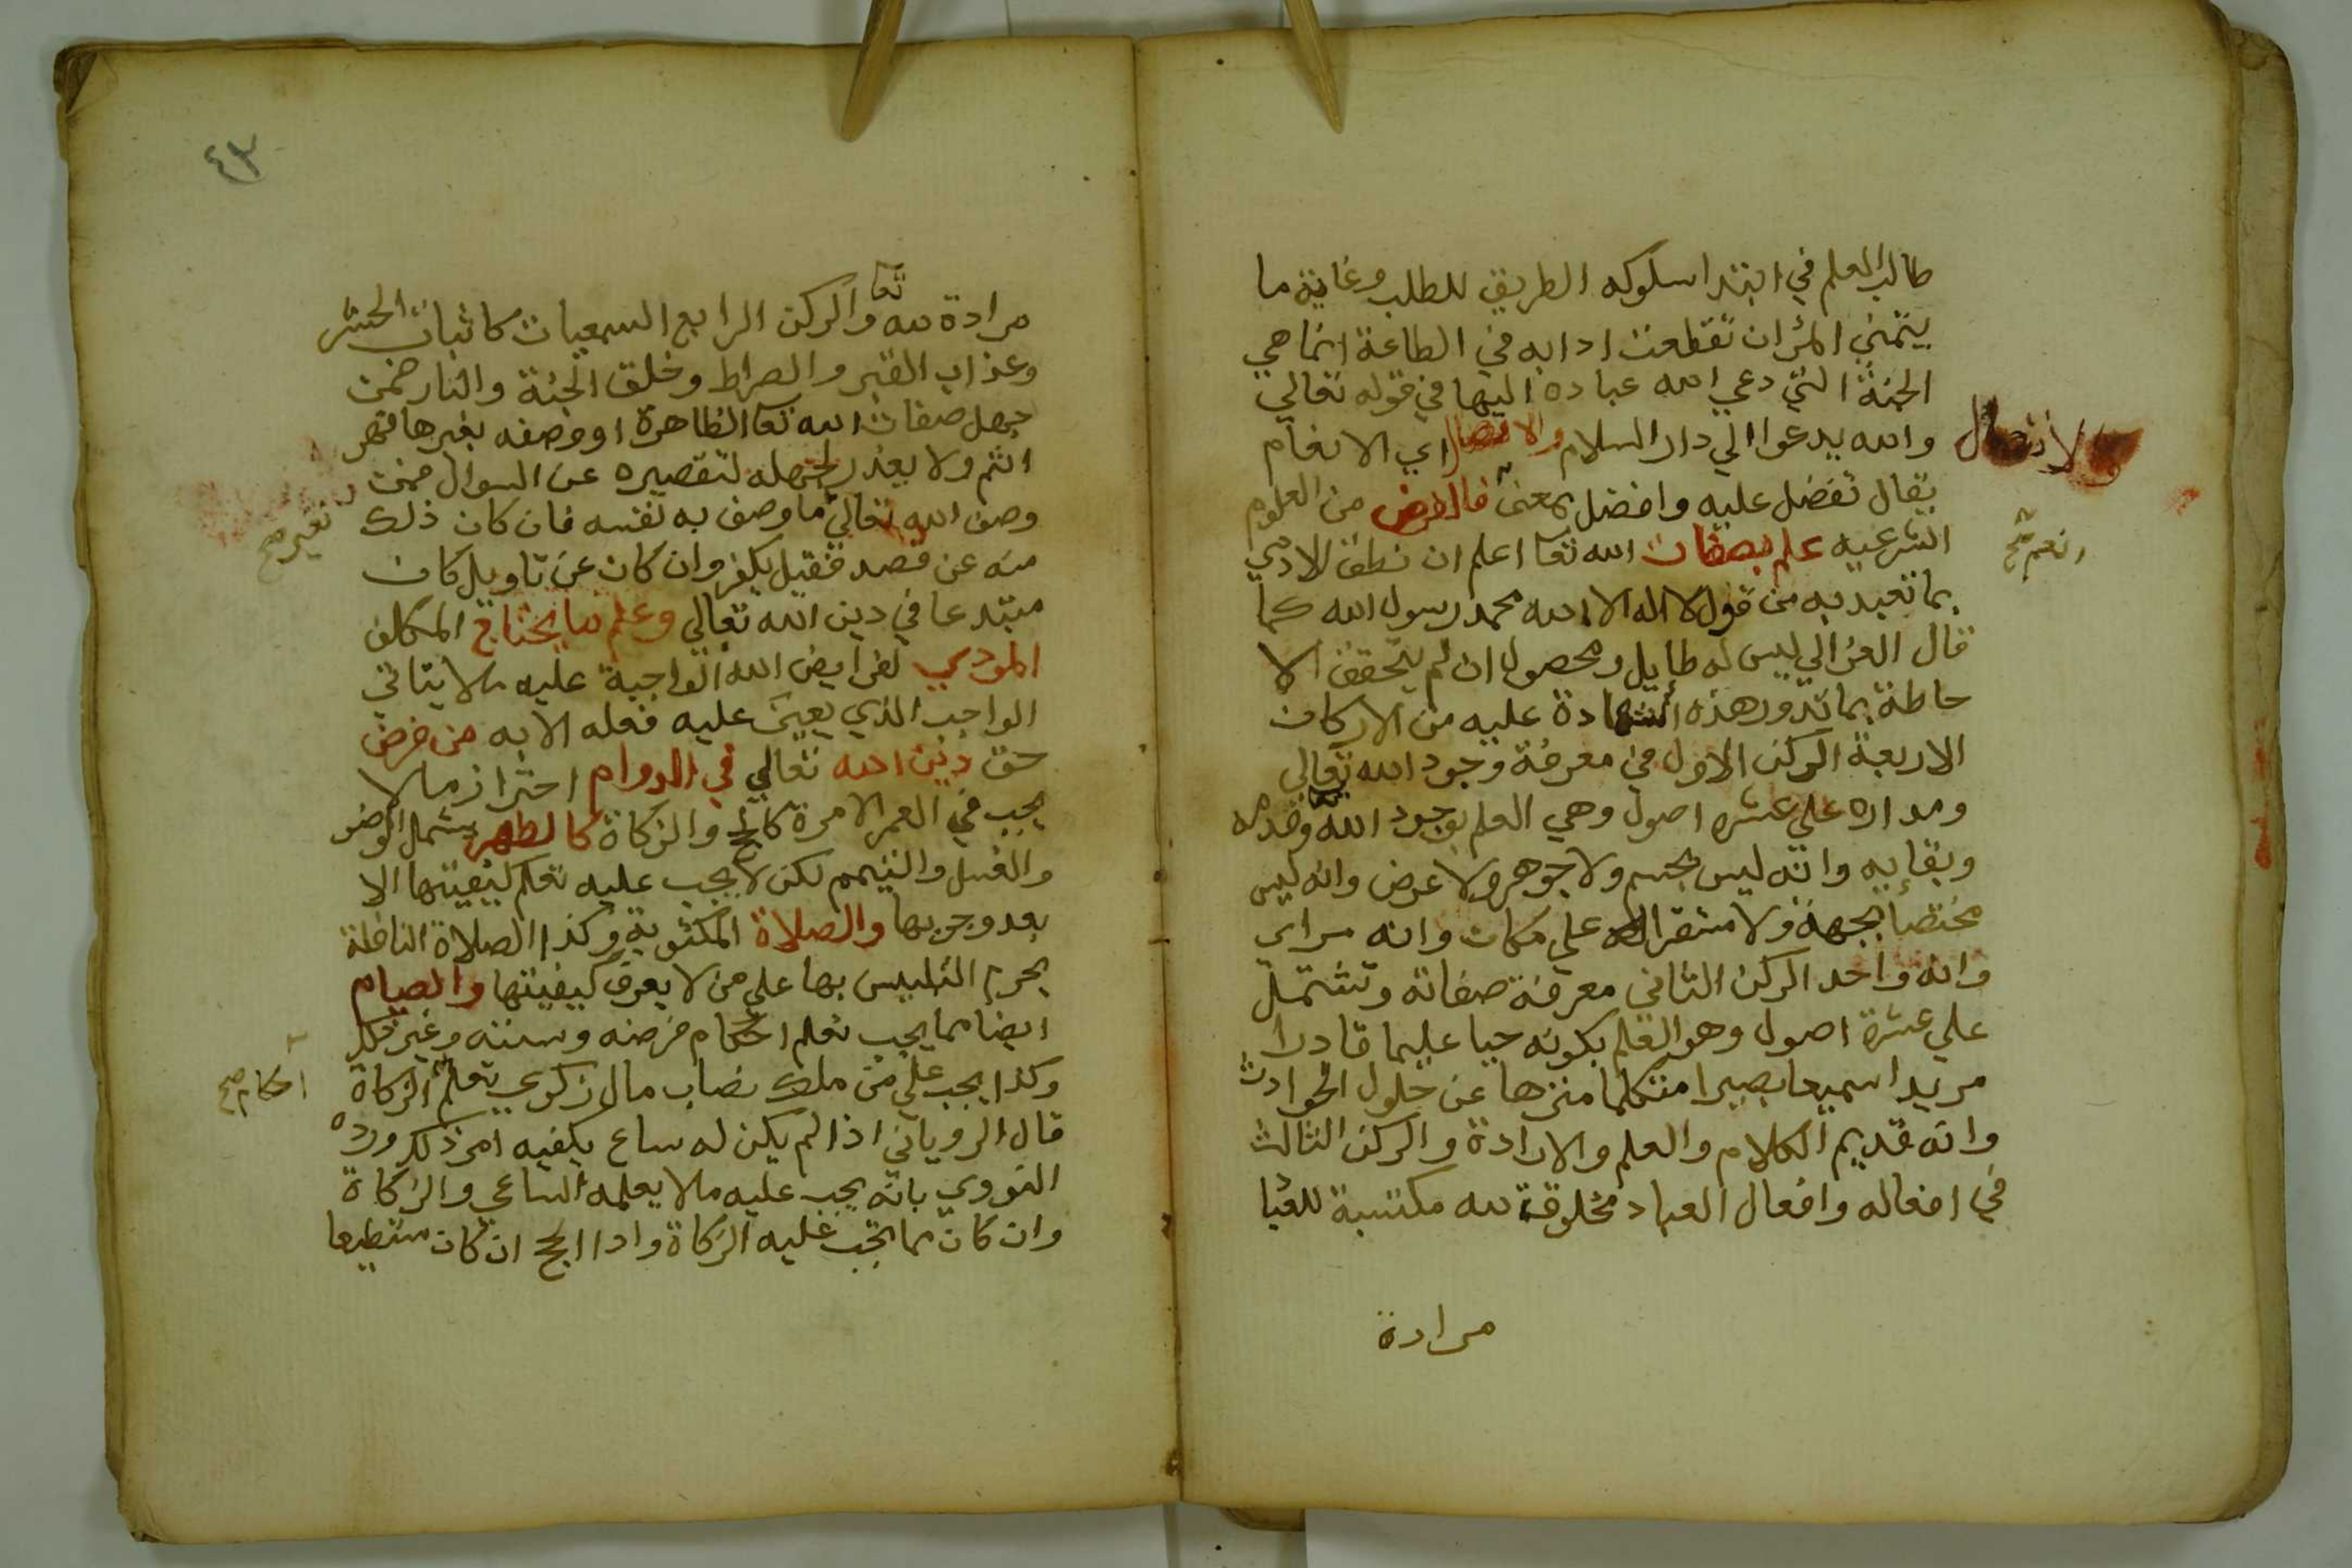 طالب العلم في ابتدا سلوكه الطريق للطلب وغاية ما
يتمني المرا ان تقطعت ادابه في الطاعة انما هي
الجنة التي دعي الله عباده اليها في قوله تعالي
والله يدعوا الي دار السلام والافضال اي الانعام
والافضال
يقال تفضل عليه وافضل بمعني فالفرض من العلوم
انعم صح
الشرعيه علم بصفات الله تعا اعلم ان نطق الادمي
بما تعبد به من قول لا اله الا الله محمد رسول الله كما
قال الغزالي ليس له طايل ومحصول ان لم يتحقق الا
حاطة بما تدور هذه الشهادة عليه من الاركان
الاربعة الركن الاول في معرفة وجود الله تعالي
ومداره علي عشرة اصول وهي العلم بوجود الله وقدمه
وبقايه وانه ليس بجسم ولا جوهر ولا عرض وانه ليس
مختصا بجهة ولا مستقرا علي مكان وانه مراي
وانه واحد الركن الثاني معرفة صفاته وتشتمل
علي عشرة اصول وهو العلم بكونه حيا عليما قادرا
مريدا سميعا بصيرا متكلما منزها عن حلول الحوادث
وانه قديم الكلام والعلم والارادة والركن الثالث
في افعاله وافعال العباد مخلوقة لله مكتسبة للعبا
مرادة
٤٣
مرادة لله تعا والركن الرابع السمعيات كاثبات الحشر
وعذاب القبر والصراط وخلق الجنة والنار فمن
جهل صفات الله تعا الظاهرة او وصفه بغيرها فهو
اثم ولا يعذر لجهله لتقصيره عن السوال فمن
وصف الله تعالي ما وصف به نفسه فان كان ذلك
بغير صح
منه عن قصد فقيل يكفر وان كان عن تاويل كان
مبتدعا في دين الله تعالي وعلم ما يحتاج المكلف
المودي لفرايض الله الواجبة عليه ملا يتاتي
الواجب الذي يعين عليه فعله الا به من فرض
حق دين الله تعالي في الدوام احترازما لا
يجب في العمر الا مرة كالحج والزكاة كالطهر يشمل الوضو
والغسل والتيمم لكن لا يجب عليه تعلم كيفيتها الا
بعد وجوبها والصلاة المكتوبة وكذا الصلاة النافلة
يحرم التلبيس بها علي من لا يعرف كيفيتها والصيام
ايضا مما يجب تعلم احكام فرضه وسننه وغير ذلك
وكذا يجب علي من ملك نصاب مال زكوي تعلم الزكاة
احكام صح
قال الروياني اذا لم يكن له ساع يكفيه امر ذلك ورده
النووي بانه يجب عليه ملا يعلمه الساعي والزكاة
وان كان مما تجب عليه الزكاة وادا الحج ان كان مستطيعا